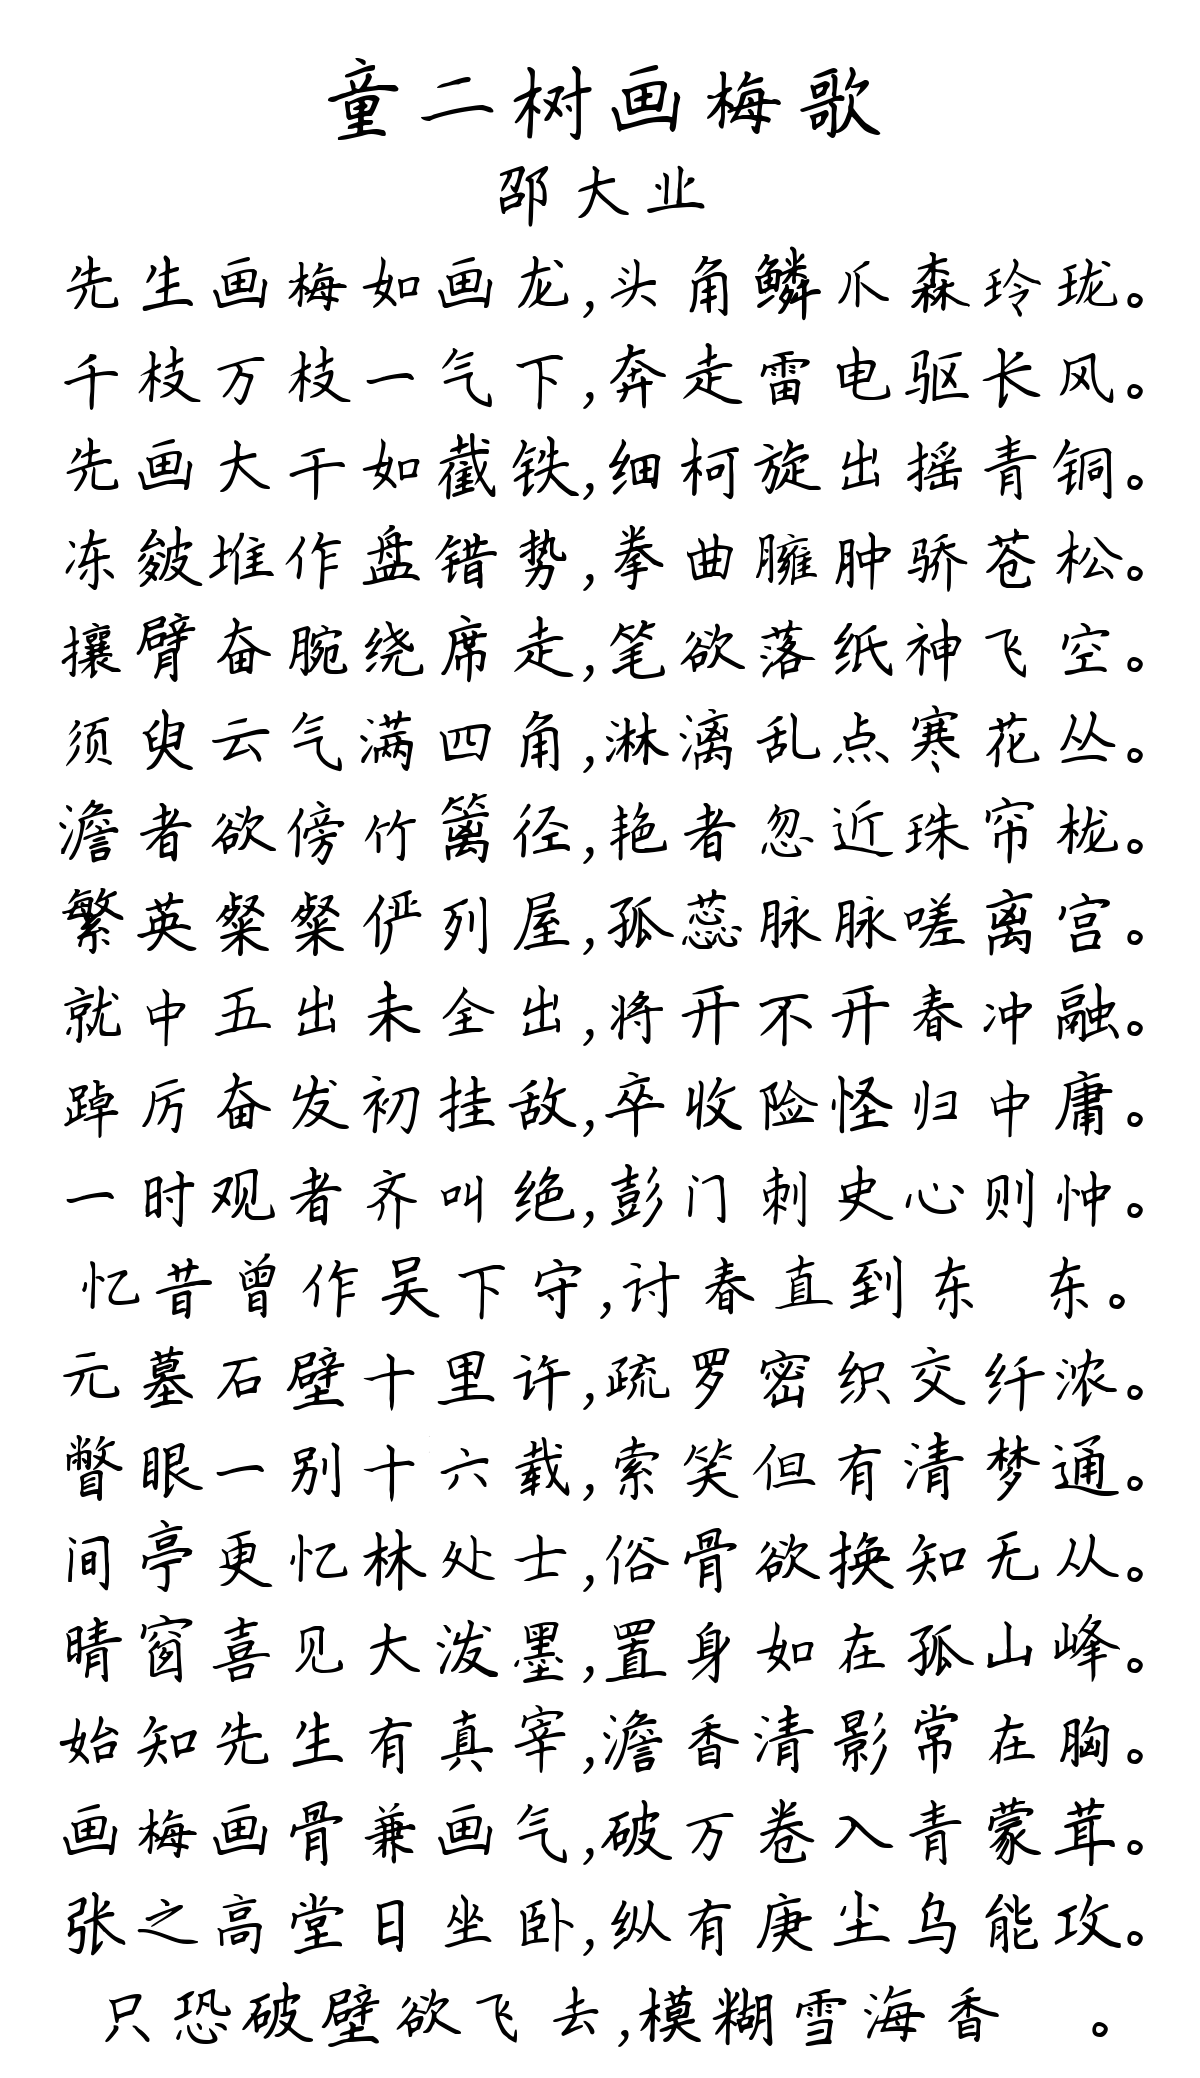 童二树画梅歌
邵大业
先生画梅如画龙,头角鳞爪森玲珑。
千枝万枝一气下,奔走雷电驱长风。
先画大干如截铁,细柯旋出摇青铜。
冻皴堆作盘错势,拳曲臃肿骄苍松。
攘臂奋腕绕席走,笔欲落纸神飞空。
须臾云气满四角,淋漓乱点寒花丛。
澹者欲傍竹篱径,艳者忽近珠帘栊。
繁英粲粲俨列屋,孤蕊脉脉嗟离宫。
就中五出未全出,将开不开春冲融。
踔厉奋发初挂敌,卒收险怪归中庸。
一时观者齐叫绝,彭门刺史心则忡。
忆昔曾作吴下守,讨春直到东 东。
元墓石壁十里许,疏罗密织交纤浓。
瞥眼一别十六载,索笑但有清梦通。
间亭更忆林处士,俗骨欲换知无从。
晴窗喜见大泼墨,置身如在孤山峰。
始知先生有真宰,澹香清影常在胸。
画梅画骨兼画气,破万卷入青蒙茸。
张之高堂日坐卧,纵有庚尘乌能攻。
只恐破壁欲飞去,模糊雪海香 。